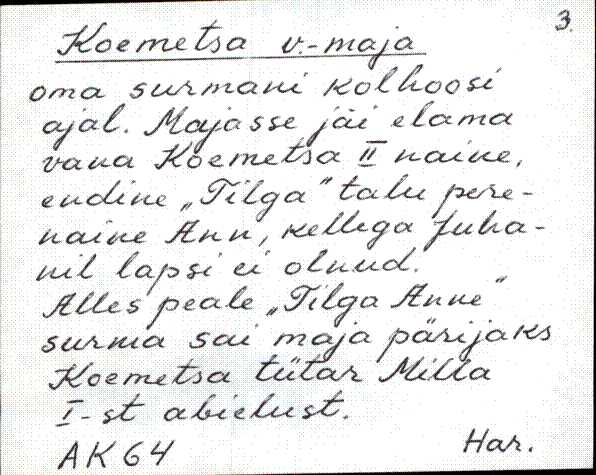 3.
Koemetsa v.-maja
oma surmani kolhoosi
ajal. Majasse jäi elama
vana Koemetsa II naine,
endine „Tilga" talu pere-
naine Ann, kellega Juha-
nil lapsi ei olnud.
Alles peale „Tilga Anne"
surma sai maja pärijaks
Koemetsa tütar Milla
I-st abielust.
AK64 Har.